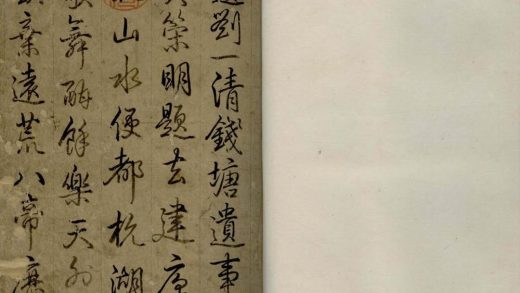 劉一清錢塘遺事
策明題去建
山水便都杭湖
舞酣餘樂天
棄遠荒八帝